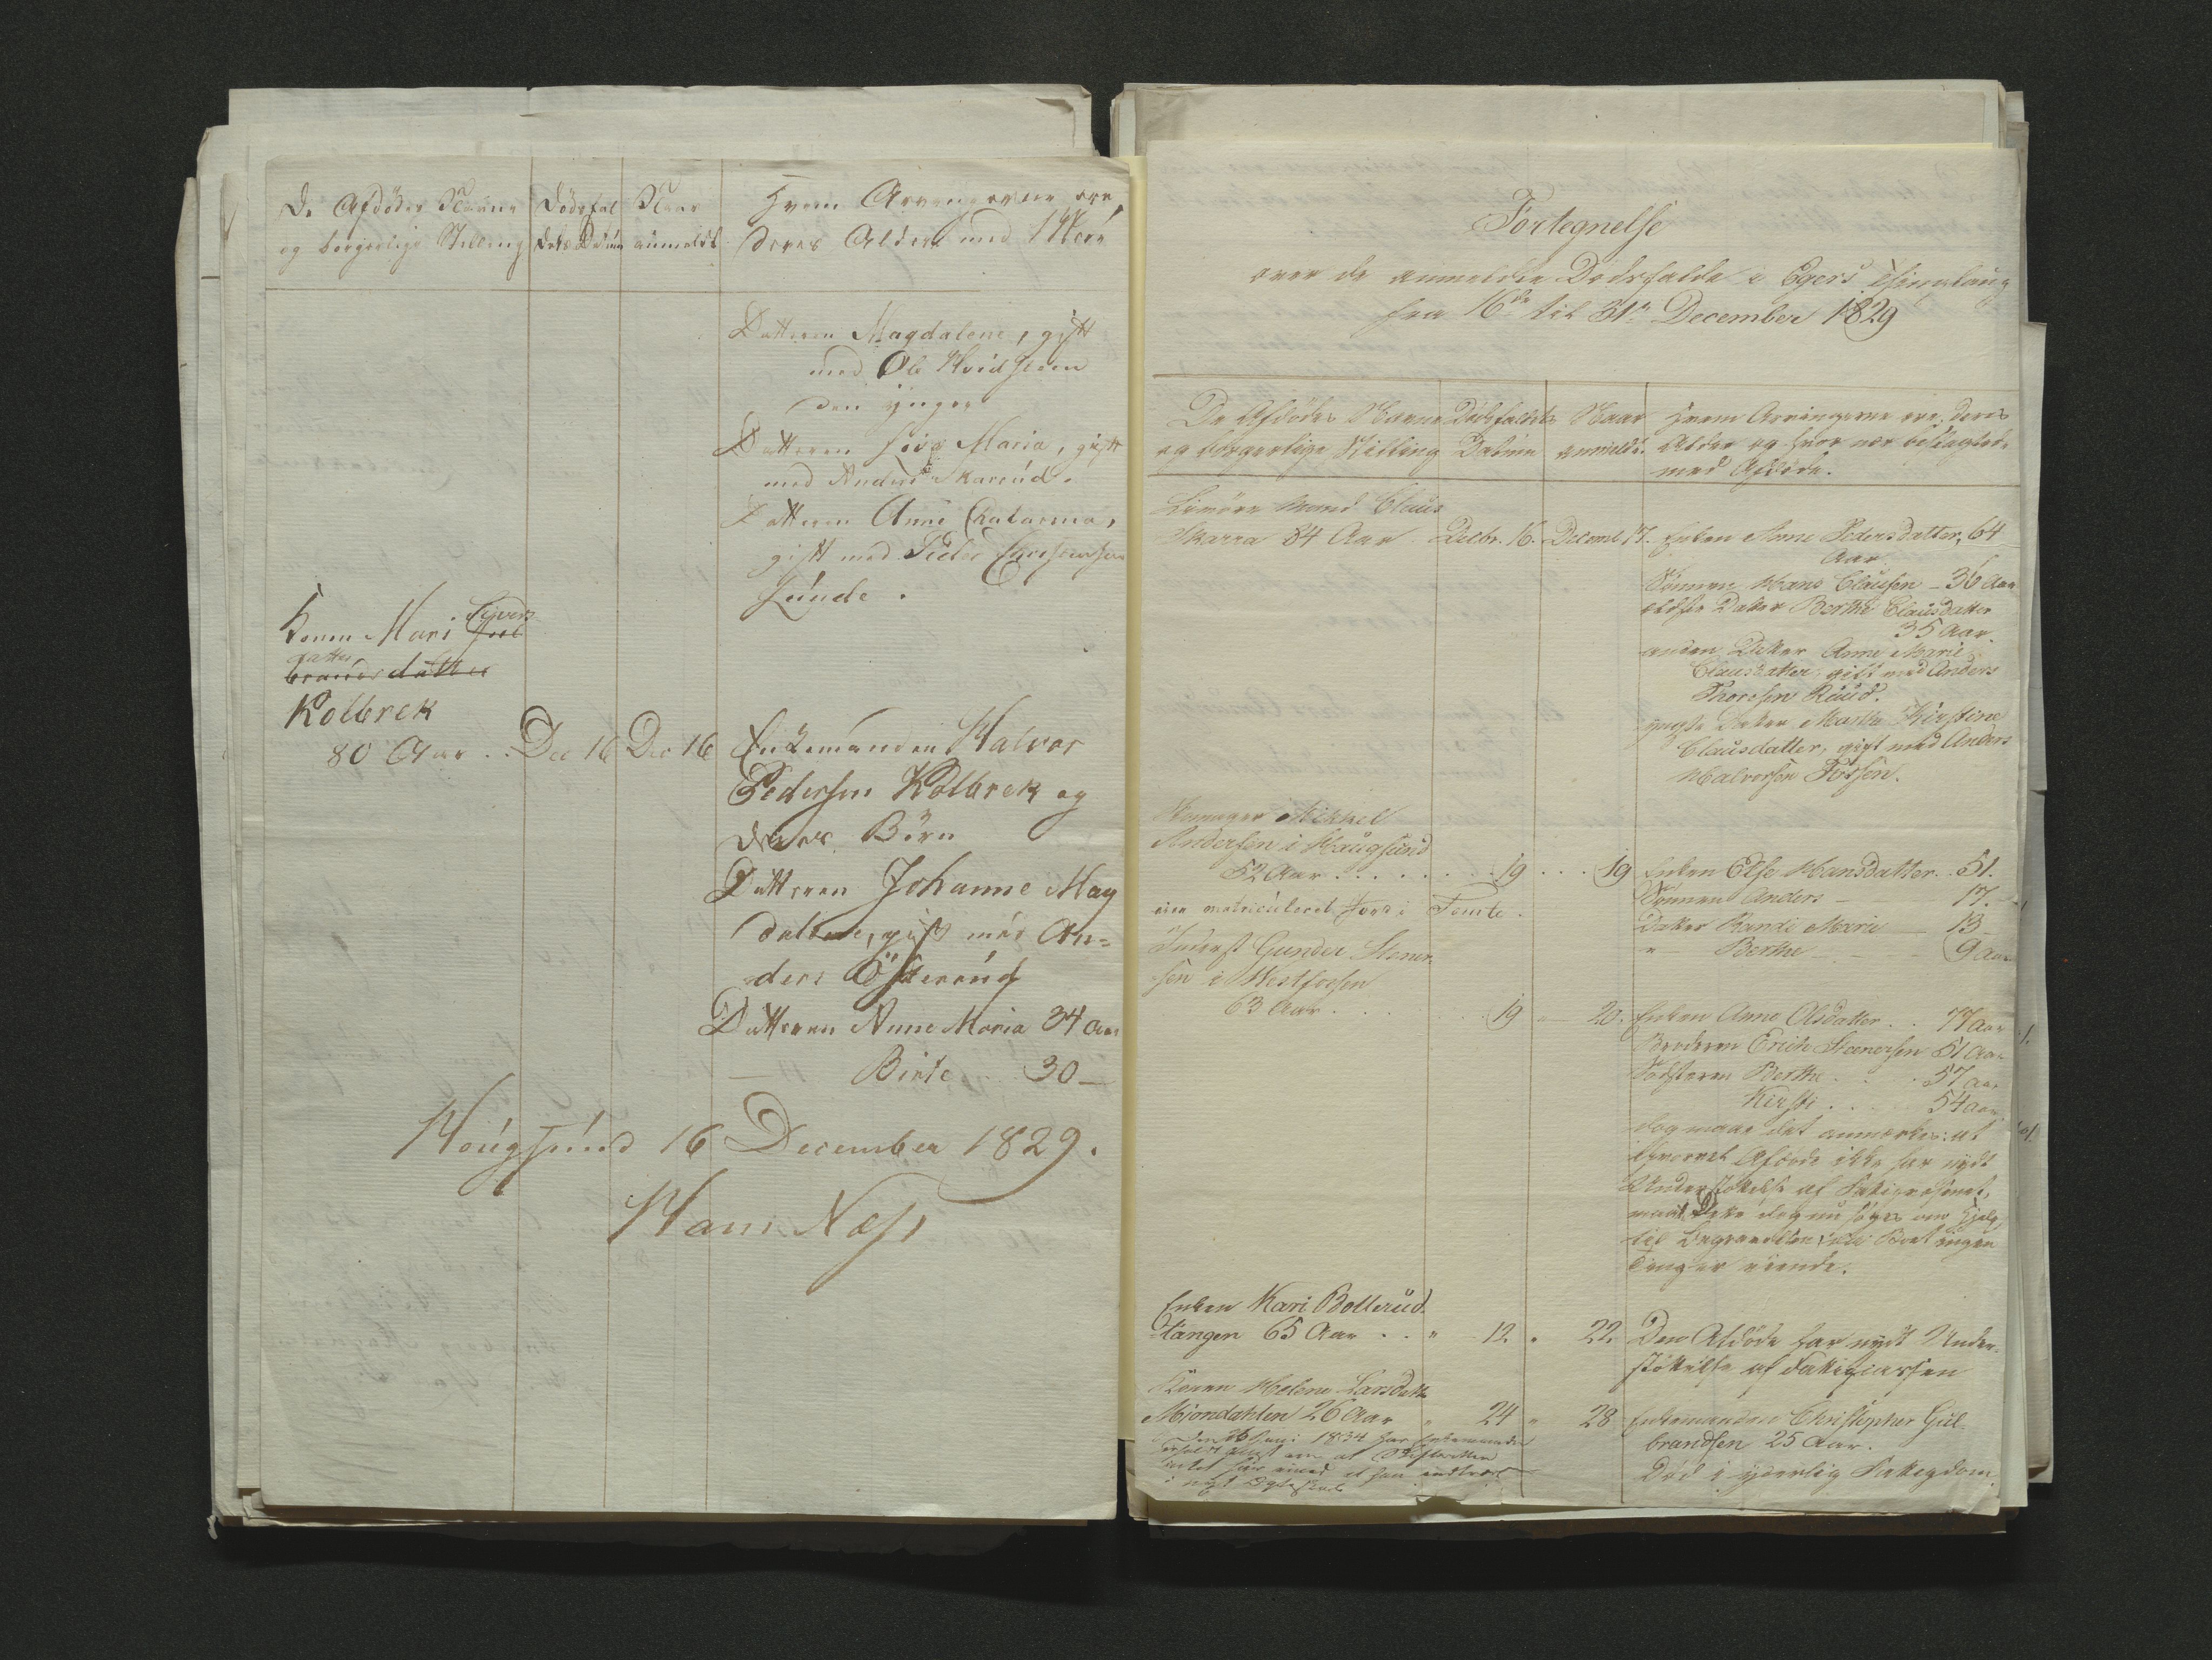 De Afdödes Navne
og borgerlige Stilling
Dödsfal
dets Datum
Naar
anmeldt
Hvem Arvingerne ere,
deres Alder med Mere
Datteren Magdalene, gift
med Ole Hvidsteen
den ynger
Datteren Siva Maria, gift
med Anders Skarrud.
Datteren Anne Chatarina,
gift med Peder Christensen
Lunde.
Konen Mari Sivers
datter
Kolbrek
80 Aar .. Dec 16 Dec 16
Enkemanden Halvor
Pedersen Kolbrek og
deres Börn
Datteren Johanne Mag
dalene, gift med An=
ders Österud
Datteren Anne Maria 34 Aar
— Birte .. 30 —
Hougsund 16 December 1829.
Hans Næss
Fortegnelse
over de anmeldte Dödsfalde i Egers Thinglaug
fra 16de til 31te December 1829
De Afdödes Navne
og borgerlige Stilling
Dödsfaldets
Datum
Naar
anmeldt.
Hvem Arvingerne ere, deres
Alder og hvor nær beslægtede
med Afdöde.
Mand Claus
Skarra 84 Aar Decbr. 16. Decemb 17. Enken Anne Pedersdatter, 64
Aar.
Sönnen Hans Clausen – 36 Aar
eldste Datter Berthe Clausdatter
35 Aar.
anden Datter Anne Marie
Clausdatter gift med Anders
Thoresen Ruud.
yngste Datter Marthe Kirstine
Clausdatter, gift med Anders
Halvorsen Fossen.
Skomager Mikkel
Andersen i Haugsund
52 Aar . . . . . 19 . . . 19 Enken Else Hansdatter . 51.
Sönnen Anders – 17. –
Datter Randi Marie – 13 –
" Berthe – – 9 Aar
eier matriculeret Jord i Tomte.
Inderst Gunder Stener=
sen i Westfosen
63 Aar . . . . 19 " 20. Enken Anne Olsdatter . . 77 Aar
Broderen Erich Steenersen 61 Aar
Södsteren Berthe . . . 57 Aar
Kirsti . . . 54 Aar.
dog maae det anmærkes: at
Afdöde ikke har nydt
Understöttelse af Fattigvæsenet,
maatte dog nu söges om Hjelp
til Begravelsen, da Boet ingen
Ting er eiende.
Enken Kari Bollerud=
tangen 65 Aar . . " 12. " 22. Den Afdöde har nydt Under=
stöttelse af Fattigcassen
Konen Helene Larsdatter
Miondahlen 26 Aar " 24 " 28 Enkemanden Christopher Gul
brandsen 25 Aar.
Död i yderlig Fattigdom.
Den 26 Juni 1834 har Enkemanden
erholdt Attest om at Skifteretten
intet har imod at han indtræder
i nyt Ægteskab